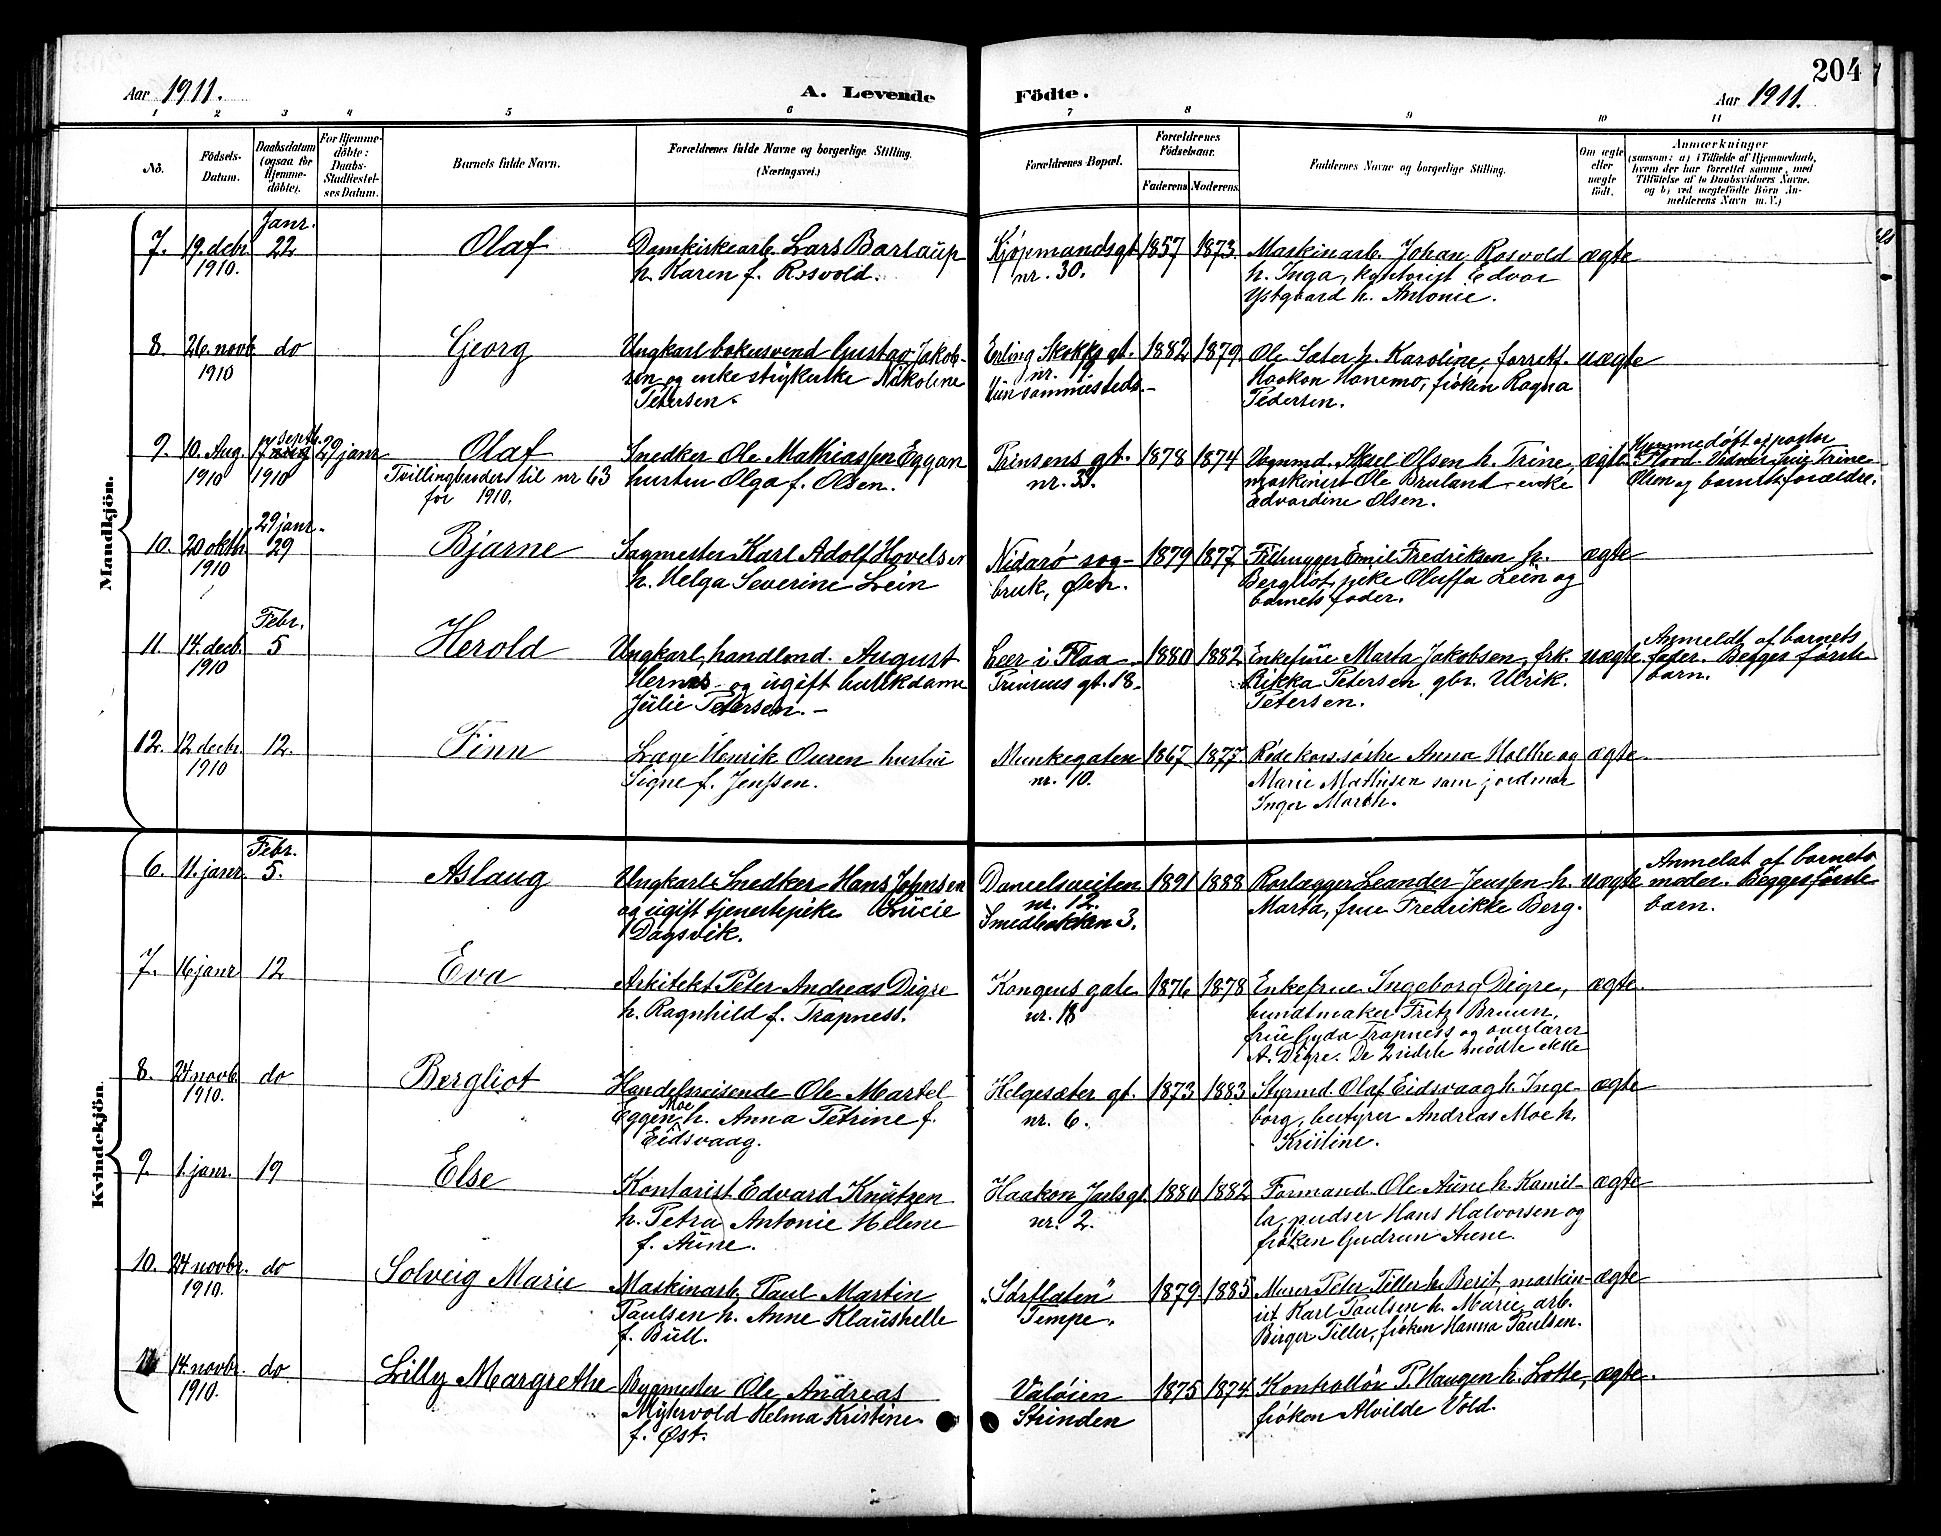 204
Aar 1911.
A. Levende
Födte.
Aar 1911.
1 2 3 4 5 6 7 8 9 10 11
No.
Födsels-Datum.
Daabsdatum (ogsaa for Hjemme-döbte).
For Hjemme-döbte: Daabs-Stadfæstel-ses Datum.
Barnets fulde Navn.
Forældrenes fulde Navne og borgerlige Stilling. (Næringsvei.)
Forældrenes Bopæl.
Forældrenes Födselsaar.
Faderens. Moderens.
Faddernes Navne og borgerlige Stilling.
Om ægte eller uægte födt.
Anmærkninger
(saasom: a) i Tilfælde af Hjemmedaab,
hvem der har forrettet samme, med
Tilföielse af to Daabsvidners Navne.
og b) ved uægtefödte Börn An-
melderens Navn m. V.)
Mandkjön.
7. 19. debr. 1910. Janr. 22 Olaf
Domkirkearb. Lars Barlaup
h. Karen f. Rosvold.
Kjøpmandsgt. nr. 30.
1857 1873
Maskinarb. Johan Rosvold
h. Inga, kontorist Edvar
Ystgaard h. Antonie.
ægte
8. 26. novb. 1910 do Georg
Ungkarl bokersvend Gustav Jakob-
sen og enke strykerske Nikoline
Petersen.
Erling Skakks gt.
nr.
Hun sammesteds.
1882 1879
Ole Sæter h. Karoline, forretf.
Haakon Hanemo, frøken Ragna
Pedersen.
uægte
9. 10. Aug. 1910 17 septb. 1910 29 janr Olaf
Tvillingbroder til nr 63
for 1910.
Snedker Ole Mathiassen Eggan
hustru Olga f. Olsen.
Prinsens gt.
nr. 39.
1878 1874
Vognmd. Skael Olsen h. Trine,
maskinist Ole Bruland enke
Edvardine Olsen.
ægte
Hjemmedøpt af pastor
Flood. Vidner: frue Trine
Olsen og barnets forældre.
10. 20 oktb. 1910 29 janr. 29 Bjarne
Sagmester Karl Adolf Hovelsen
h. Helga Severine Lein
Nidarø sag-
bruk, Øen.
1879 1877
Filhugger Emil Fredriksen h.
Bergliot, pike Oluffa Lein og
barnets fader.
ægte
11. 14. decb. 1910 Febr. 5 Herold
Ungkarl, handlend. August
Hernes og ugift butikdame
Julie Petersen.
Leer i Flaa
Prinsens gt. 18
1880 1882
Enkefrue Marta Jakobsen, frk.
Rikka Petersen gbr. Ulrik
Petersen.
uægte
Anmeldt af barnets
fader. Begges første
barn.
12. 12 decbr. 1910 12. Finn
Læge Henrik Ouren hustru
Signe f. Jenssen.
Munkegaten
nr. 10.
1867 1877.
Røde kors søstre Anna Holthe og
Marie Mathisen sam jordmor
Inger Morkh.
ægte.
Kvindekjön.
6. 11. janr. Febr. 5. Aslaug
Ungkarl Snedker Hans Johnsen
og ugift tjenestepike Lucie
Dagsvik.
Danielsveiten
nr. 12.
Smedbakken 3.
1891 1888
Rørlægger Leander Jenssen h.
Marta, frue Fredrikke Berg.
uægte
Anmeldt af barnets
moder. Begges første
barn.
7. 16 janr 12 Eva
Arkitekt Peter Andreas Digre
h. Ragnhild f. Trapness.
Kongens gate
nr. 18
1876 1878
Enkefrue Ingeborg Digre,
bundtmaker Fritz Bruun,
frue Gyda Trapness og overlærer
A. Digre. De 2 sidste mødte ikke
ægte.
8. 24 novb. 1910. do Bergliot
Handelsreisende Ole Martel
Eggen Moe h. Anna Petrine f.
Eidsvaag.
Helgesæter gt.
nr. 6.
1873 1883
Styrmd. Olaf Eidsvaag h. Inge-
borg, bestyrer Andreas Moe h.
Kristine.
ægte
9. 1. janr. 19 Else
Kontorist Edvard Knutzen
h. Petra Antonie Helene
f. Aune.
Haakon Jarlsgt.
nr. 2.
1880 1882
Formand Ole Aune h. Kamil-
la, pudser Hans Halvorsen og
frøken Gudrun Aune.
ægte
10. 24 novbr. 1910. do Solveig Marie
Maskinarb. Paul Martin
Paulsen h. Anne Klaushelle
f. Bull.
"Sørflaten"
Tempe.
1879 1885
Murer Peter Tiller h. Berit, maskin-
ist Karl Paulsen h. Marie, arb.
Birger Tiller, frøken Hanna Paulsen.
ægte
11 14. novbr. 1910. do Lilly Margrethe
Bygmester Ole Andreas
Myhrvold Helma Kristine
f. Øst.
Valøien
Strinden
1875 1874
Kontrollør P. Haugen h. Lotte,
frøken Alvilde Vold.
ægte.